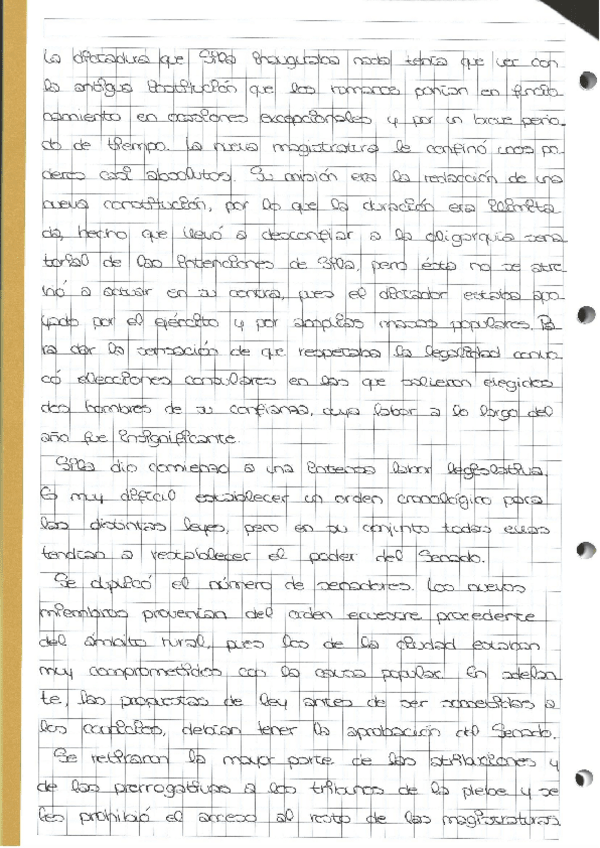 La dictadura que Sila inauguraba nada tenía que ver con
la antigua institución que los romanos ponían en funcio
namiento en ocasiones excepcionales y por un breve perio
do de tiempo. La nueva magistratura le confinó unos po
deres casi absolutos. Su misión era la redacción de una
nueva constitución, por lo que la duración era ilimita
da, hecho que llevó a desconfiar a la oligarquía sena
torial de las intenciones de Sila, pero ésta no se atre
vió a actuar en su contra, pues el dictador estaba apo
yado por el ejército y por amplias masas populares. Pa
ra dar la sensación de que respetaba la legalidad convo
có elecciones consulares en las que salieron elegidos
dos hombres de su confianza, cuya labor a lo largo del
año fue insignificante.
Sila dio comienzo a una intensa labor legislativa.
Es muy difícil establecer un orden cronológico para
las distintas leyes, pero en su conjunto todas ellas
tendían a restablecer el poder del Senado.
Se duplicó el número de senadores. Los nuevos
miembros provenían del orden ecuestre procedente
del ámbito rural, pues los de la ciudad estaban
muy comprometidos con la causa popular. En adelan
te, las propuestas de ley antes de ser sometidas a
los comicios, debían tener la aprobación del Senado.
Se retiraron la mayor parte de las atribuciones y
de las prerrogativas a los tribunos de la plebe y se
les prohibió el acceso al resto de las magistraturas